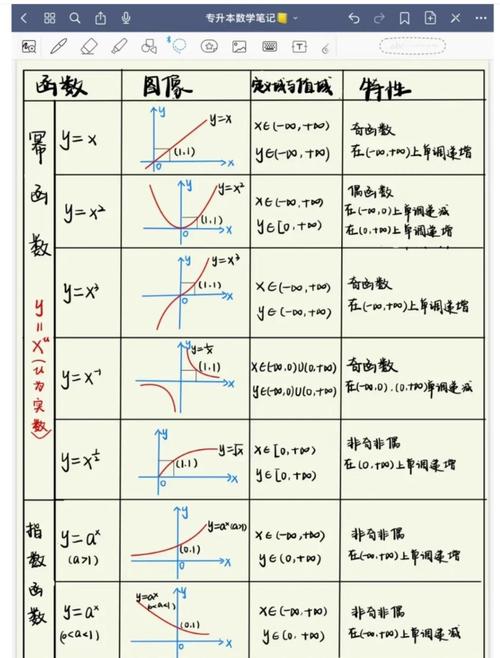 专升本数学笔记
函数 图像 定义域与值域 特性
幂函数
y=xᵘ(u为实数)
y=x
y
y=x
(1,1)
0
x
x∈(-∞,+∞)
y∈(-∞,+∞)
奇函数
在(-∞,+∞)上单调递增
y=x²
y
y=x²
(1,1)
0
x
x∈(-∞,+∞)
y∈[0,+∞)
偶函数
在(-∞,0)上单调递减
在(0,+∞)上单调递增
y=x³
y
y=x³
(1,1)
0
x
x∈(-∞,+∞)
y∈(-∞,+∞)
奇函数
在(-∞,+∞)上单调递增
y=x⁻¹
y
y=1/x
(1,1)
0
x
x∈(-∞,0)∪(0,+∞)
y∈(-∞,0)∪(0,+∞)
奇函数
在(-∞,0).(0,+∞)单调递减
y=x^½
y
y=√x
(1,1)
0
x
x∈[0,+∞)
y∈[0,+∞)
非奇非偶
在(0,+∞)上单调递增
指数函数
y=aˣ
(a>1)
y
y=aˣ(a>1)
(0,1)
0
x
x∈(-∞,+∞)
y∈(0,+∞)
非奇非偶
在(-∞,+∞)上单调递增
y=aˣ
(0<a<1)
y=aˣ
(0<a<1)
y
(0,1)
0
x
x∈(-∞,+∞)
y∈(0,+∞)
非奇非偶
在(-∞,+∞)上单调递减